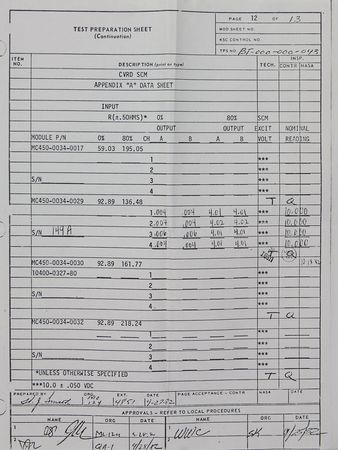 TEST PREPARATION SHEET
(Continuation)
PAGE 12 OF 13
MOD SHEET NO.
KSC CONTROL NO.
TPS NO.
ITEM NO. DESCRIPTION (print or type) TECH. INSP. CONTR NASA
CVRD SCM
APPENDIX "A" DATA SHEET
INPUT
R(±.5OHMS)* 0% 80% SCM
OUTPUT OUTPUT EXCIT NOMINAL
MODULE P/N 0% 80% CH A B A B VOLT READING
MC450-0034-0017 59.03 195.05
1 ***
2 ***
S/N 3 ***
4 ***
T Q
MC450-0034-0029 92.89 136.48
1 .004 .004 4.01 4.01 *** 10.000
2 .004 .004 4.02 4.02 *** 10.000
S/N 144A 3 .006 .006 4.01 4.01 *** 10.000
4 .004 .004 4.01 4.01 *** 10.000
MC450-0034-0030 92.89 161.77
10400-0327-80 1 ***
2 ***
S/N 3 ***
4 ***
T Q
MC450-0034-0032 92.89 218.24
1 ***
2 ***
S/N 3 ***
4 ***
*UNLESS OTHERWISE SPECIFIED T Q
***10.0 ± .050 VDC
PREPARED BY ORG EXT. DATE PAGE ACCEPTANCE - CONTR NASA
4-27-82
APPROVALS - REFER TO LOCAL PROCEDURES
NAME ORG DATE NAME ORG DATE
1
2